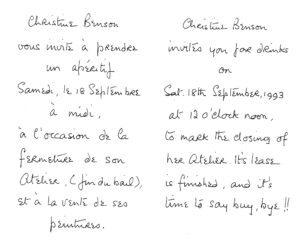 Christine Benson
vous invite à prendre
un apéritif
Samedi, le 18 Septembre
à midi,
à l'occasion de la
fermeture de son
Atelier, (fin du bail),
et à la vente de ses
peintures.
Christine Benson
invites you for drinks
on
Sat. 18th September, 1993
at 12 o'clock noon,
to mark the closing of
her Atelier. It's lease
is finished, and it's
time to say buy, bye !!